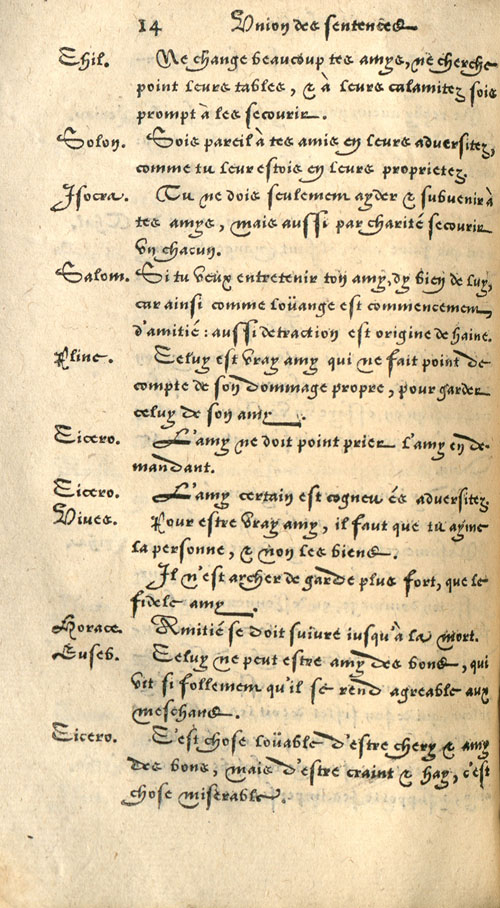 14 Vnion des sentences
Chil. Ne change beaucoup tes amys, ne cherche
point leurs tables, & à leurs calamitez sois
prompt à les secourir.
Solon. Sois pareil à tes amis en leurs aduersitez,
comme tu leur estois en leurs proprietez.
Isocra. Tu ne dois seulement ayder & subuenir à
tes amys, mais aussi par charité secourir
vn chacun.
Salom. Si tu veux entretenir ton amy, dy bien de luy,
car ainsi comme loüange est commencement
d'amitié: aussi detraction est origine de haine.
Pline. Celuy est vray amy qui ne fait point de
compte de son dommage propre, pour garder
celuy de son amy.
Cicero. L'amy ne doit point prier l'amy en de-
mandant.
Cicero. L'amy certain est cogneu és aduersitez.
Viues. Pour estre vray amy, il faut que tu ayme
la personne, & non les biens.
Il n'est archer de garde plus fort, que le
fidele amy.
Horace. Amitié se doit suiure iusqu'à la mort.
Euseb. Celuy ne peut estre amy des bons, qui
vit si follement qu'il se rend agreable aux
meschans.
Cicero. C'est chose loüable d'estre chery & amy
des bons, mais d'estre craint & hay, c'est
chose miserable.